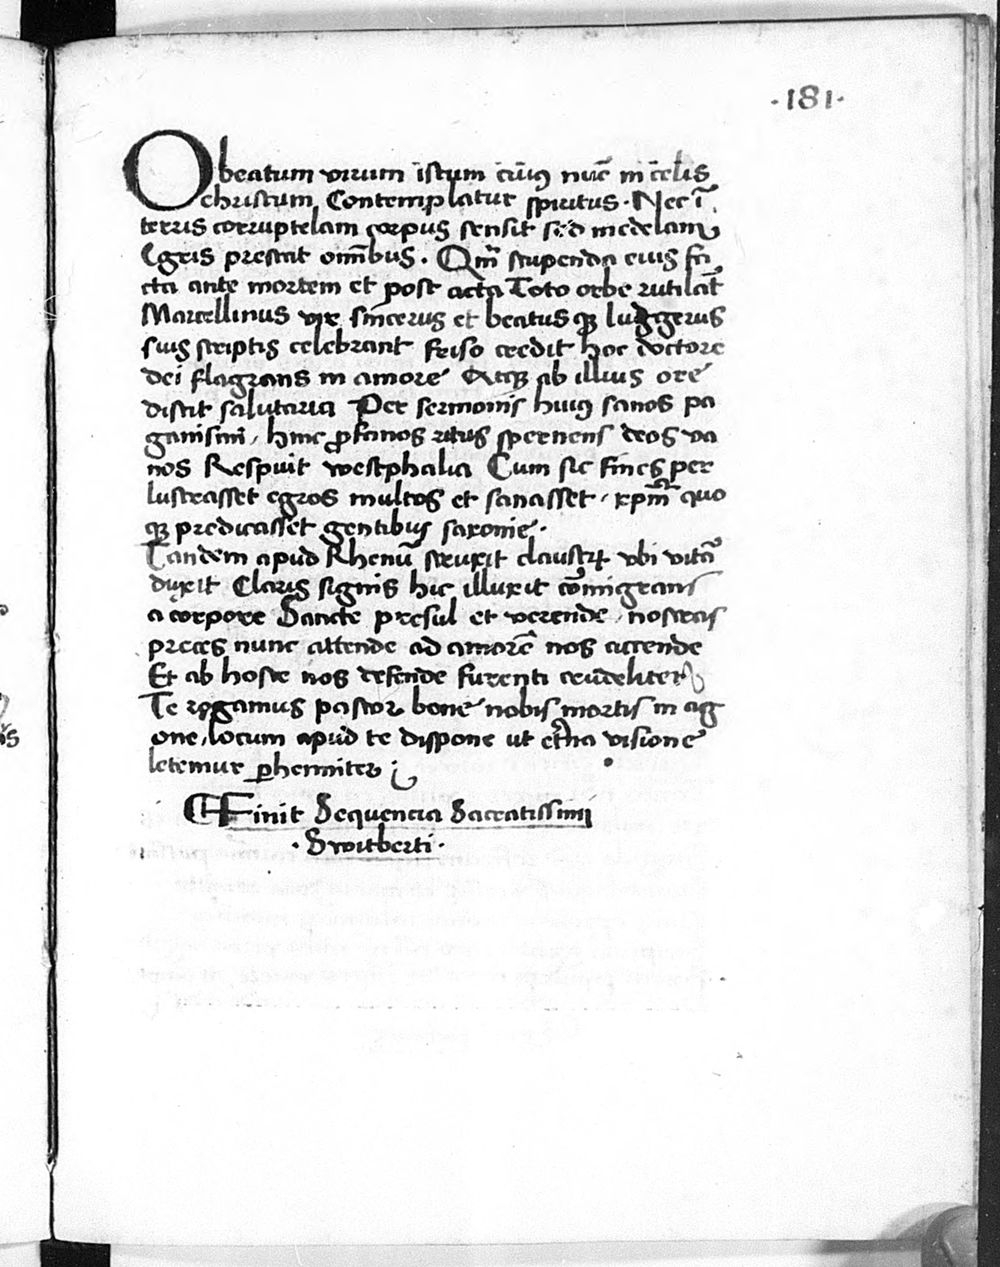 ·181·
O beatum virum istum cuiꝰ nūc in celis
christum Contemplatur spiritus · Nec ī
terris corruptelam corpus sensit sed medelam
Egris prestat omībus · Qm̄ stupenda eius fa
cta ante mortem et post acta Toto orbe rutilāt
Marcellinus vir sincerus et beatus qꝫ ludgerus
suis scriptis celebrant friso credit hoc doctore
dei flagrans in amore Atqꝫ ab illius ore
discit salutaria Per sermonis huiꝰ sanos pa
ganismi, hinc ꝓfanos ritus spernens deos va
nos Respuit westphalia Cum sic fines per
lustrasset egros multos et sanasset, xpm̄ quo
qꝫ predicasset gentibus saxonie ·
Tandem apud Rhenū struxit claustrū vbi vitā
duxit Claris signis hic illuxit cōmigrans
a corpore Sancte presul et verende nostras
preces nunc attende ad amorē nos accende
Et ab hoste nos defende furenti crudeliter
Te rogamus pastor bone nobis mortis in ag
one, locum apud te dispone ut etn̄a visione
letemur ꝑhenniter ;
Finit Sequencia Sacratissimi
· Switberti ·